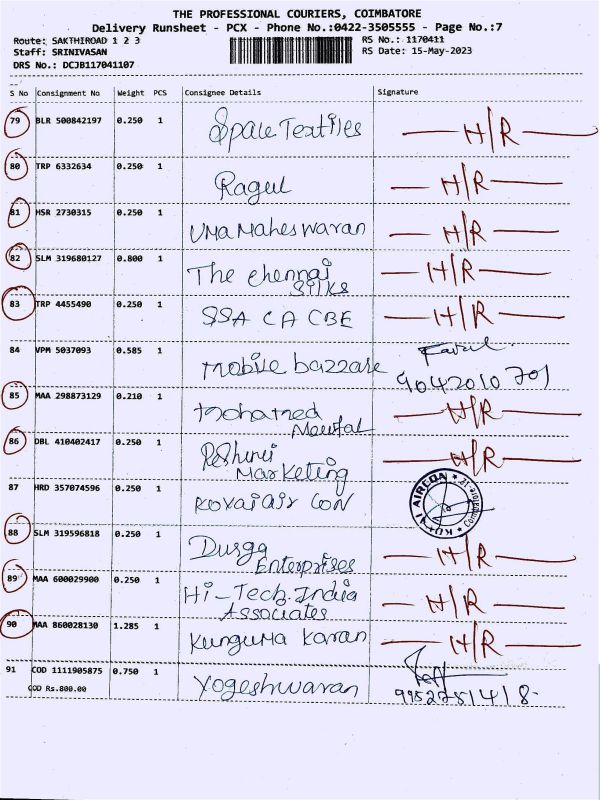 THE PROFESSIONAL COURIERS, COIMBATORE
Delivery Runsheet - PCX - Phone No.:0422-3505555 - Page No.:7
Route: SAKTHIROAD 1 2 3
RS No.: 1170411
Staff: SRINIVASAN
RS Date: 15-May-2023
DRS No.: DCJB117041107
S No Consignment No Weight PCS Consignee Details Signature
79 BLR 500842197 0.250 1 Space Textiles H/R
80 TRP 6332634 0.250 1 Ragul H/R
81 HSR 2730315 0.250 1 UMa Maheswaran H/R
82 SLM 319680127 0.800 1 The chennai H/R
Silks
83 TRP 4455490 0.250 1 SSA CA CBE H/R
84 VPM 5037093 0.585 1 Mobile bazzare
9042010701
85 MAA 298873129 0.210 1 Mohamed H/R
86 DBL 410402417 0.250 1 H/R
Marketing
87 HRD 357074596 0.250 1 KOVai air CON KOVAI AIRCON
88 SLM 319596818 0.250 1 Durga H/R
Enterprises
89 MAA 600029900 0.250 1 Hi-Tech India H/R
Associates
90 MAA 860028130 1.285 1 Kunguma Karan H/R
91 COD 1111905875 0.750 1 Yogeshwaran
COD Rs.800.00